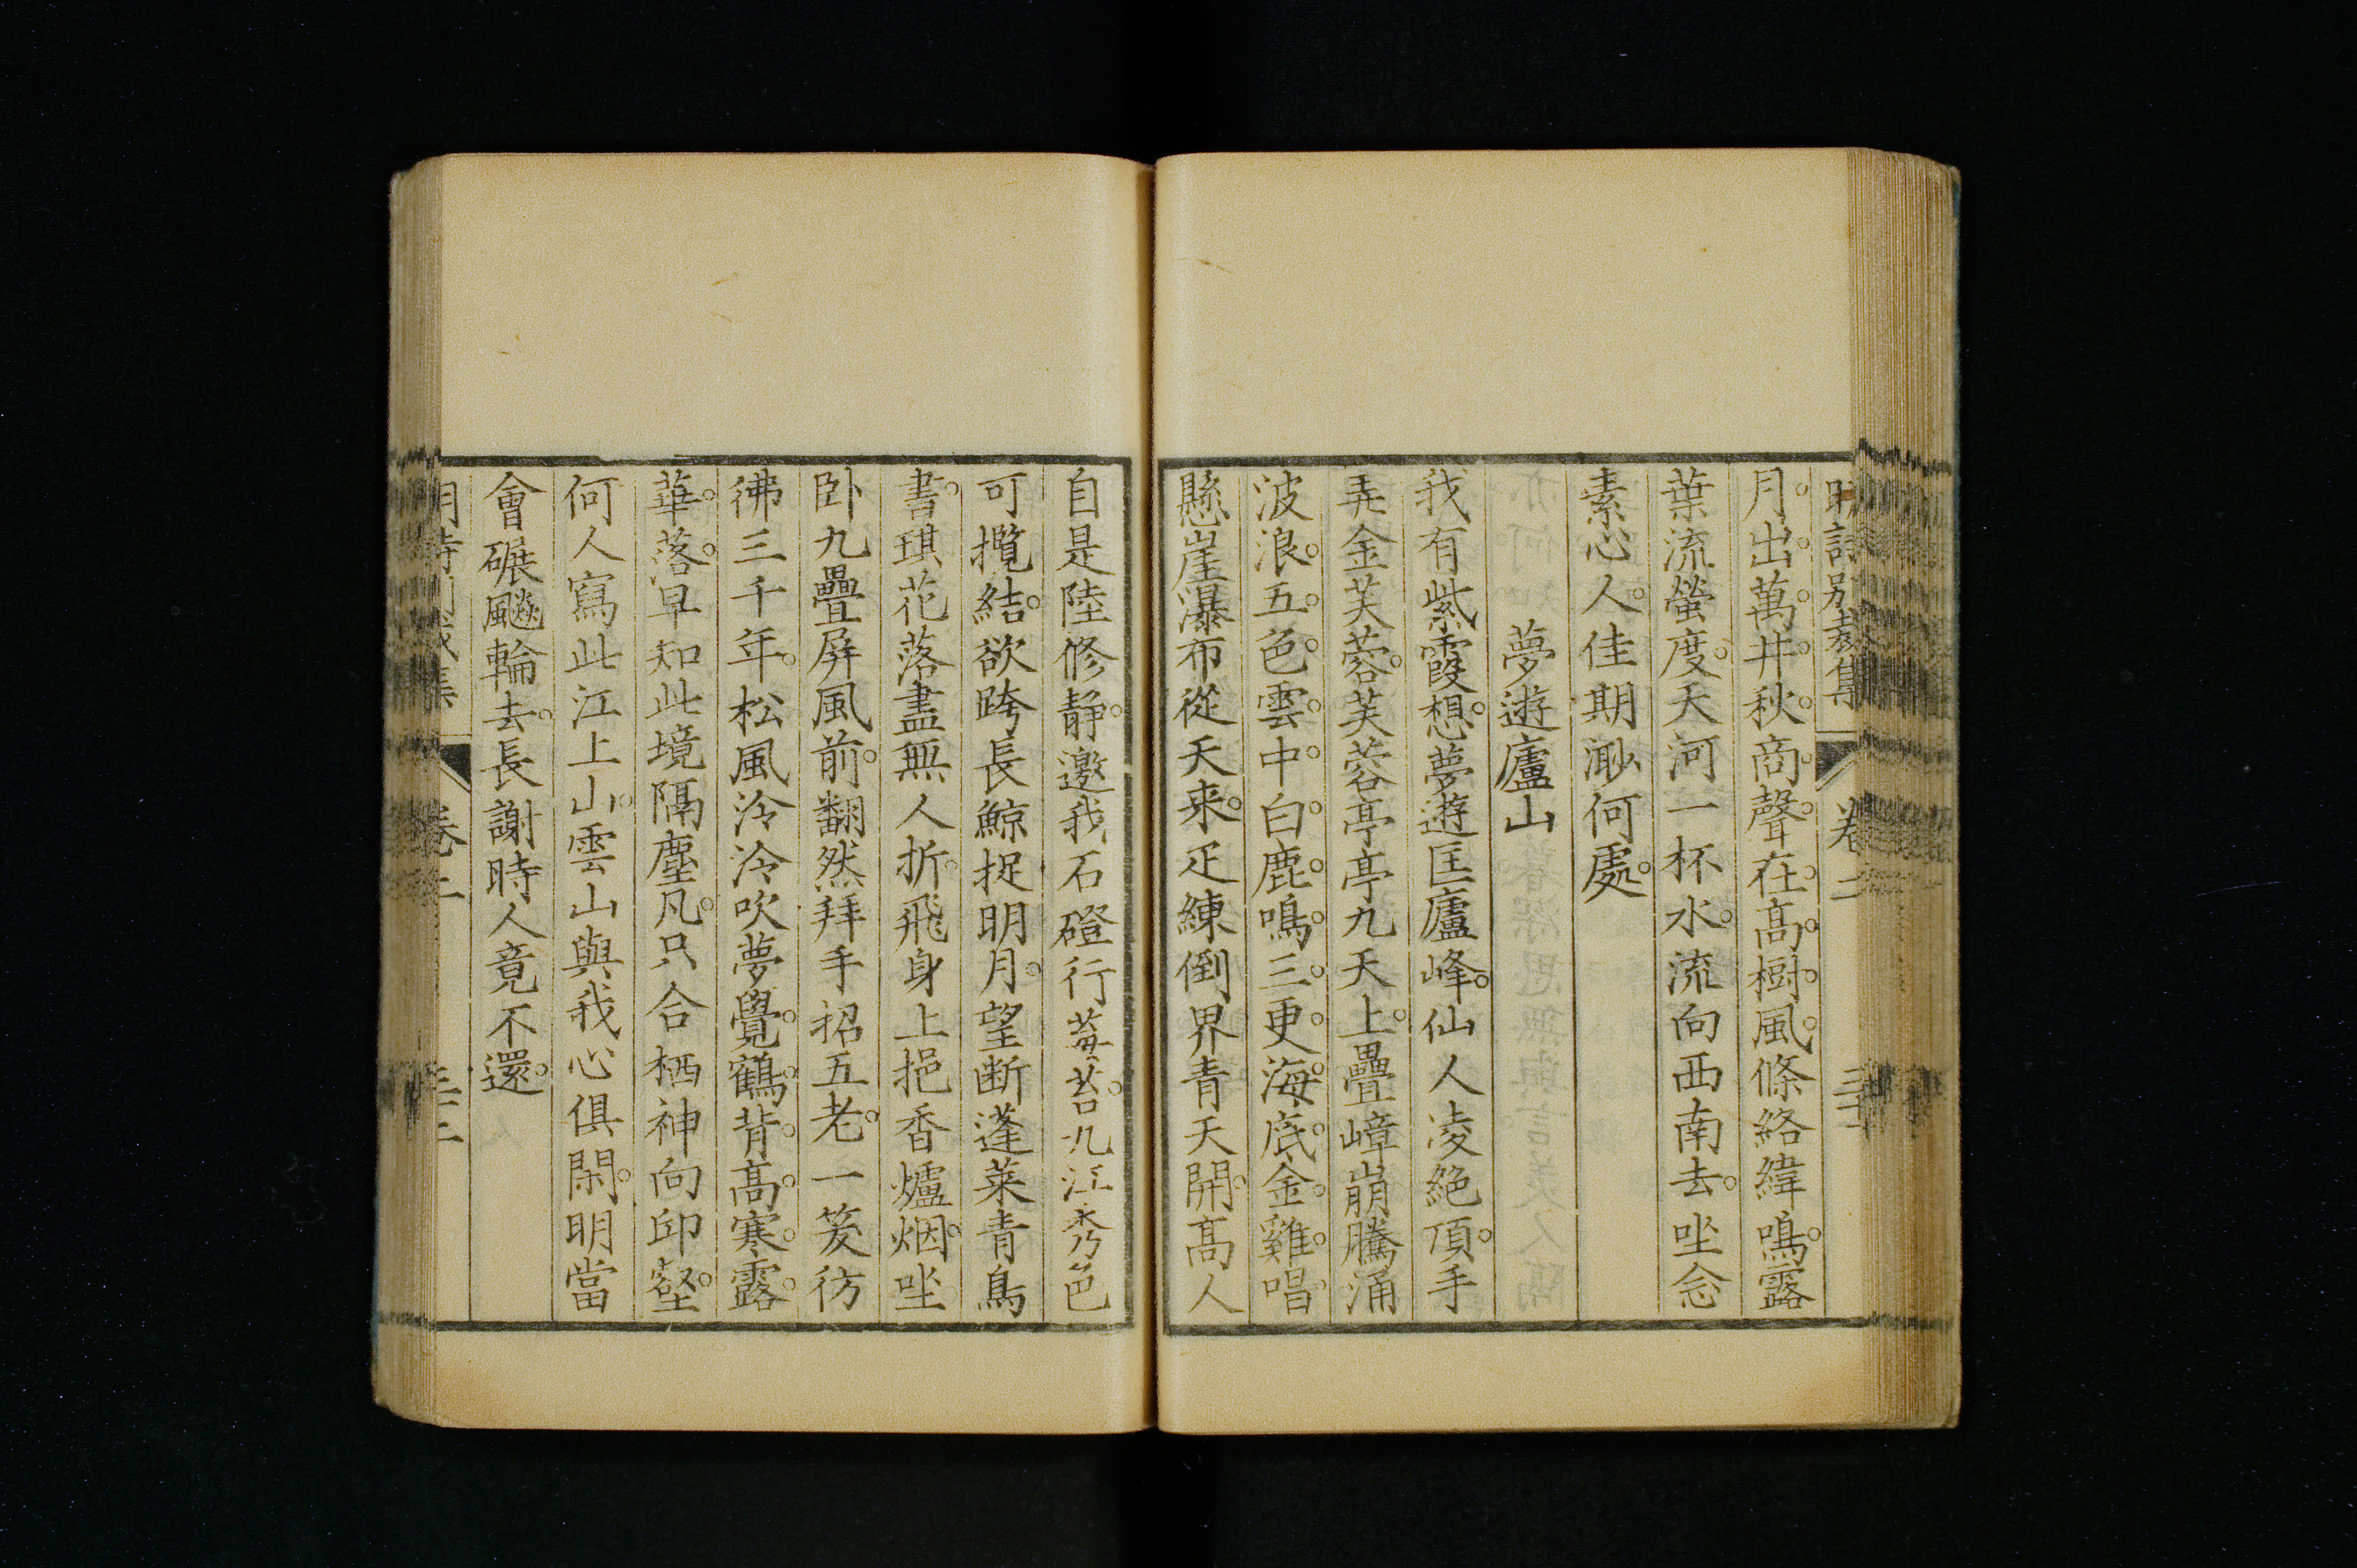 明詩別裁集 卷二
月出萬井秋商聲在高樹風條絡緯鳴露
葉流螢度天河一杯水流向西南去坐念
素心人佳期渺何處
夢遊廬山
我有紫霞想夢遊匡廬峰仙人凌絕頂手
弄金芙蓉芙蓉亭亭九天上疊嶂崩騰涌
波浪五色雲中白鹿鳴三更海底金雞唱
懸崖瀑布從天来疋練倒界青天開高人
自是陸修静邀我石磴行莓苔九江秀色
可攬結欲跨長鯨捉明月望断蓬莱青鳥
書琪花落盡無人折飛身上挹香爐烟坐
卧九疊屏風前翻然拜手招五老一笑彷
彿三千年松風泠泠吹夢覺鶴背高寒露
華落早知此境隔塵凡只合栖神向邱壑
何人寫此江上山雲山與我心俱閑明當
會碾飇輪去長謝時人竟不還
明詩別裁集 卷二